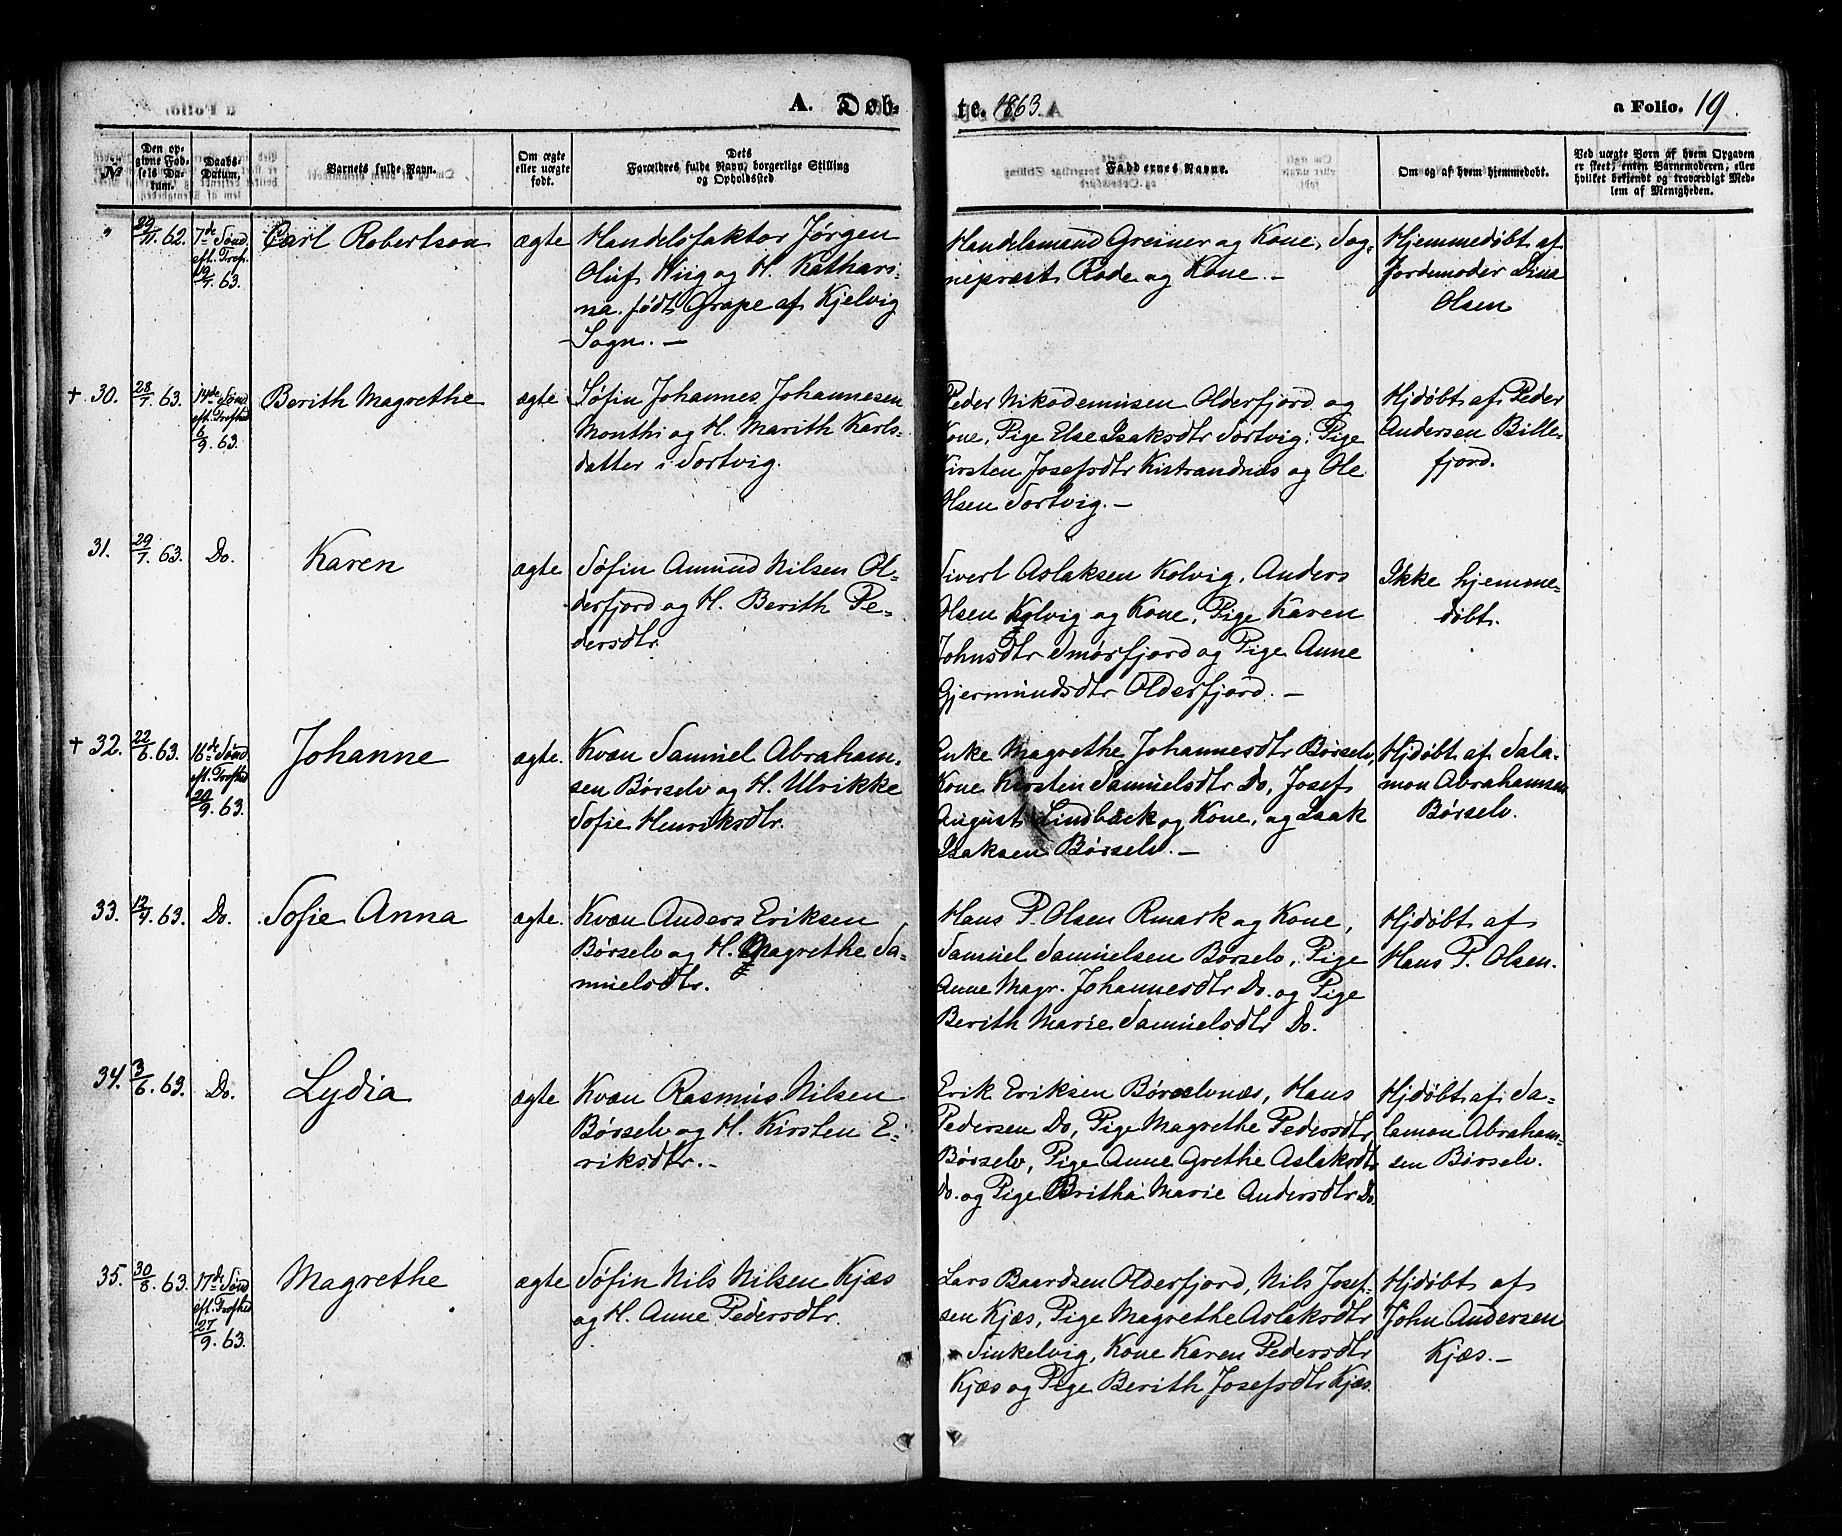 A. Døb-
te. 1863.
a Folio. 19.
№
Den op-
givne Fød-
sels Da-
tum.
Daabs-
Datum.
Barnets fulde Navn.
Om ægte
eller uægte
født.
Dets
Forældres fulde Navn, borgerlige Stilling
og Opholdssted
Faddernes Navne.
Om og af hvem hjemmedøbt.
Ved uægte Børn af hvem Opgaven
er skeet, enten Barnemoderen, eller
hvilket bekjendt og troværdigt Med-
lem af Menigheden.
" 29/11 62. 7de Sønd.
eft. Tref.
19/7 63.
Carl Robertson
ægte
Handelsfaktor Jørgen
Oluf Wiig og H. Kathari-
na født Grape af Kjelvig
Sogn. —
Handelsmand Greiner og Kone, Sog-
nepræst Rode og Kone. —
Hjemmedøbt af
Jordemoder Lina
Olsen
+ 30. 28/7 63. 14de Sønd
eft. Trefhed
6/9 63.
Berith Magrethe
ægte
Søfin Johannes Johannesen
Monthi og H. Marith Karls-
datter i Sortvig.
Peder Nikodemusen Olderfjord og
Kone, Pige Else Isaksdtr Sortvig, Pige
Kirsten Josefsdtr Kistrandnæs og Ole
Olsen Sortvig. —
Hjdøbt af Peder
Andersen Bille-
fjord.
31. 29/7 63. Do.
Karen
ægte
Søfin Amund Nilsen Ol-
derfjord og H. Berith Pe-
dersdtr.
Sivert Aslaksen Kolvig, Anders
Olsen Kolvig og Kone, Pige Karen
Johnsdtr Smørfjord og Pige Anne
Gjermundsdtr Olderfjord. —
Ikke hjemme-
døbt.
+ 32. 22/6 63. 16de Sønd
eft. Trefhed
20/9 63.
Johanne
ægte.
Kvæn Samuel Abraham-
sen Børselv og H. Ulrikke
Sofie Henriksdtr.
Enke Magrethe Johannesdtr Børselv,
Kone Kirsten Samuelsdtr Do, Josef
August Lindbäck og Kone, og Isak
Isaksen Børselv. —
Hjdøbt af Sala-
mon Abrahamsen
Børselv.
33. 63. Do.
Sofie Anna
ægte.
Kvæn Anders Eriksen
Børselv og H. Magrethe Sa-
muelsdtr.
Hans P. Olsen Rmark og Kone,
Samuel Samuelsen Børselv, Pige
Anne Magr. Johannesdtr Do. og Pige
Berith Marie Samuelsdtr Do.
Hjdøbt af
Hans P. Olsen.
34. 3/6 63. Do.
Lydia
ægte
Kvæn Rasmus Nilsen
Børselv og H. Kirsten E-
riksdtr. -
Erik Eriksen Børselvnæs, Hans
Pedersen Do, Pige Magrethe Pedersdtr
Børselv, Pige Anne Grethe Aslaksdtr
Do. og Pige Britha Marie Andersdtr Do.
Hjdøbt af Sa-
lamon Abraham-
sen Børselv.
35. 30/8 63. 17de Sønd
eft. Trefhed
27/9 63.
Magrethe
ægte
Søfin Nils Nilsen Kjæs
og H. Anne Pedersdtr.
Lars Baardsen Olderfjord, Nils Josef-
sen Kjæs, Pige Magrethe Aslaksdtr
Sinkelvig, Kone Karen Pedersdtr
Kjæs og Pige Berith Josefsdtr Kjæs.
Hjdøbt af
John Andersen
Kjæs. —